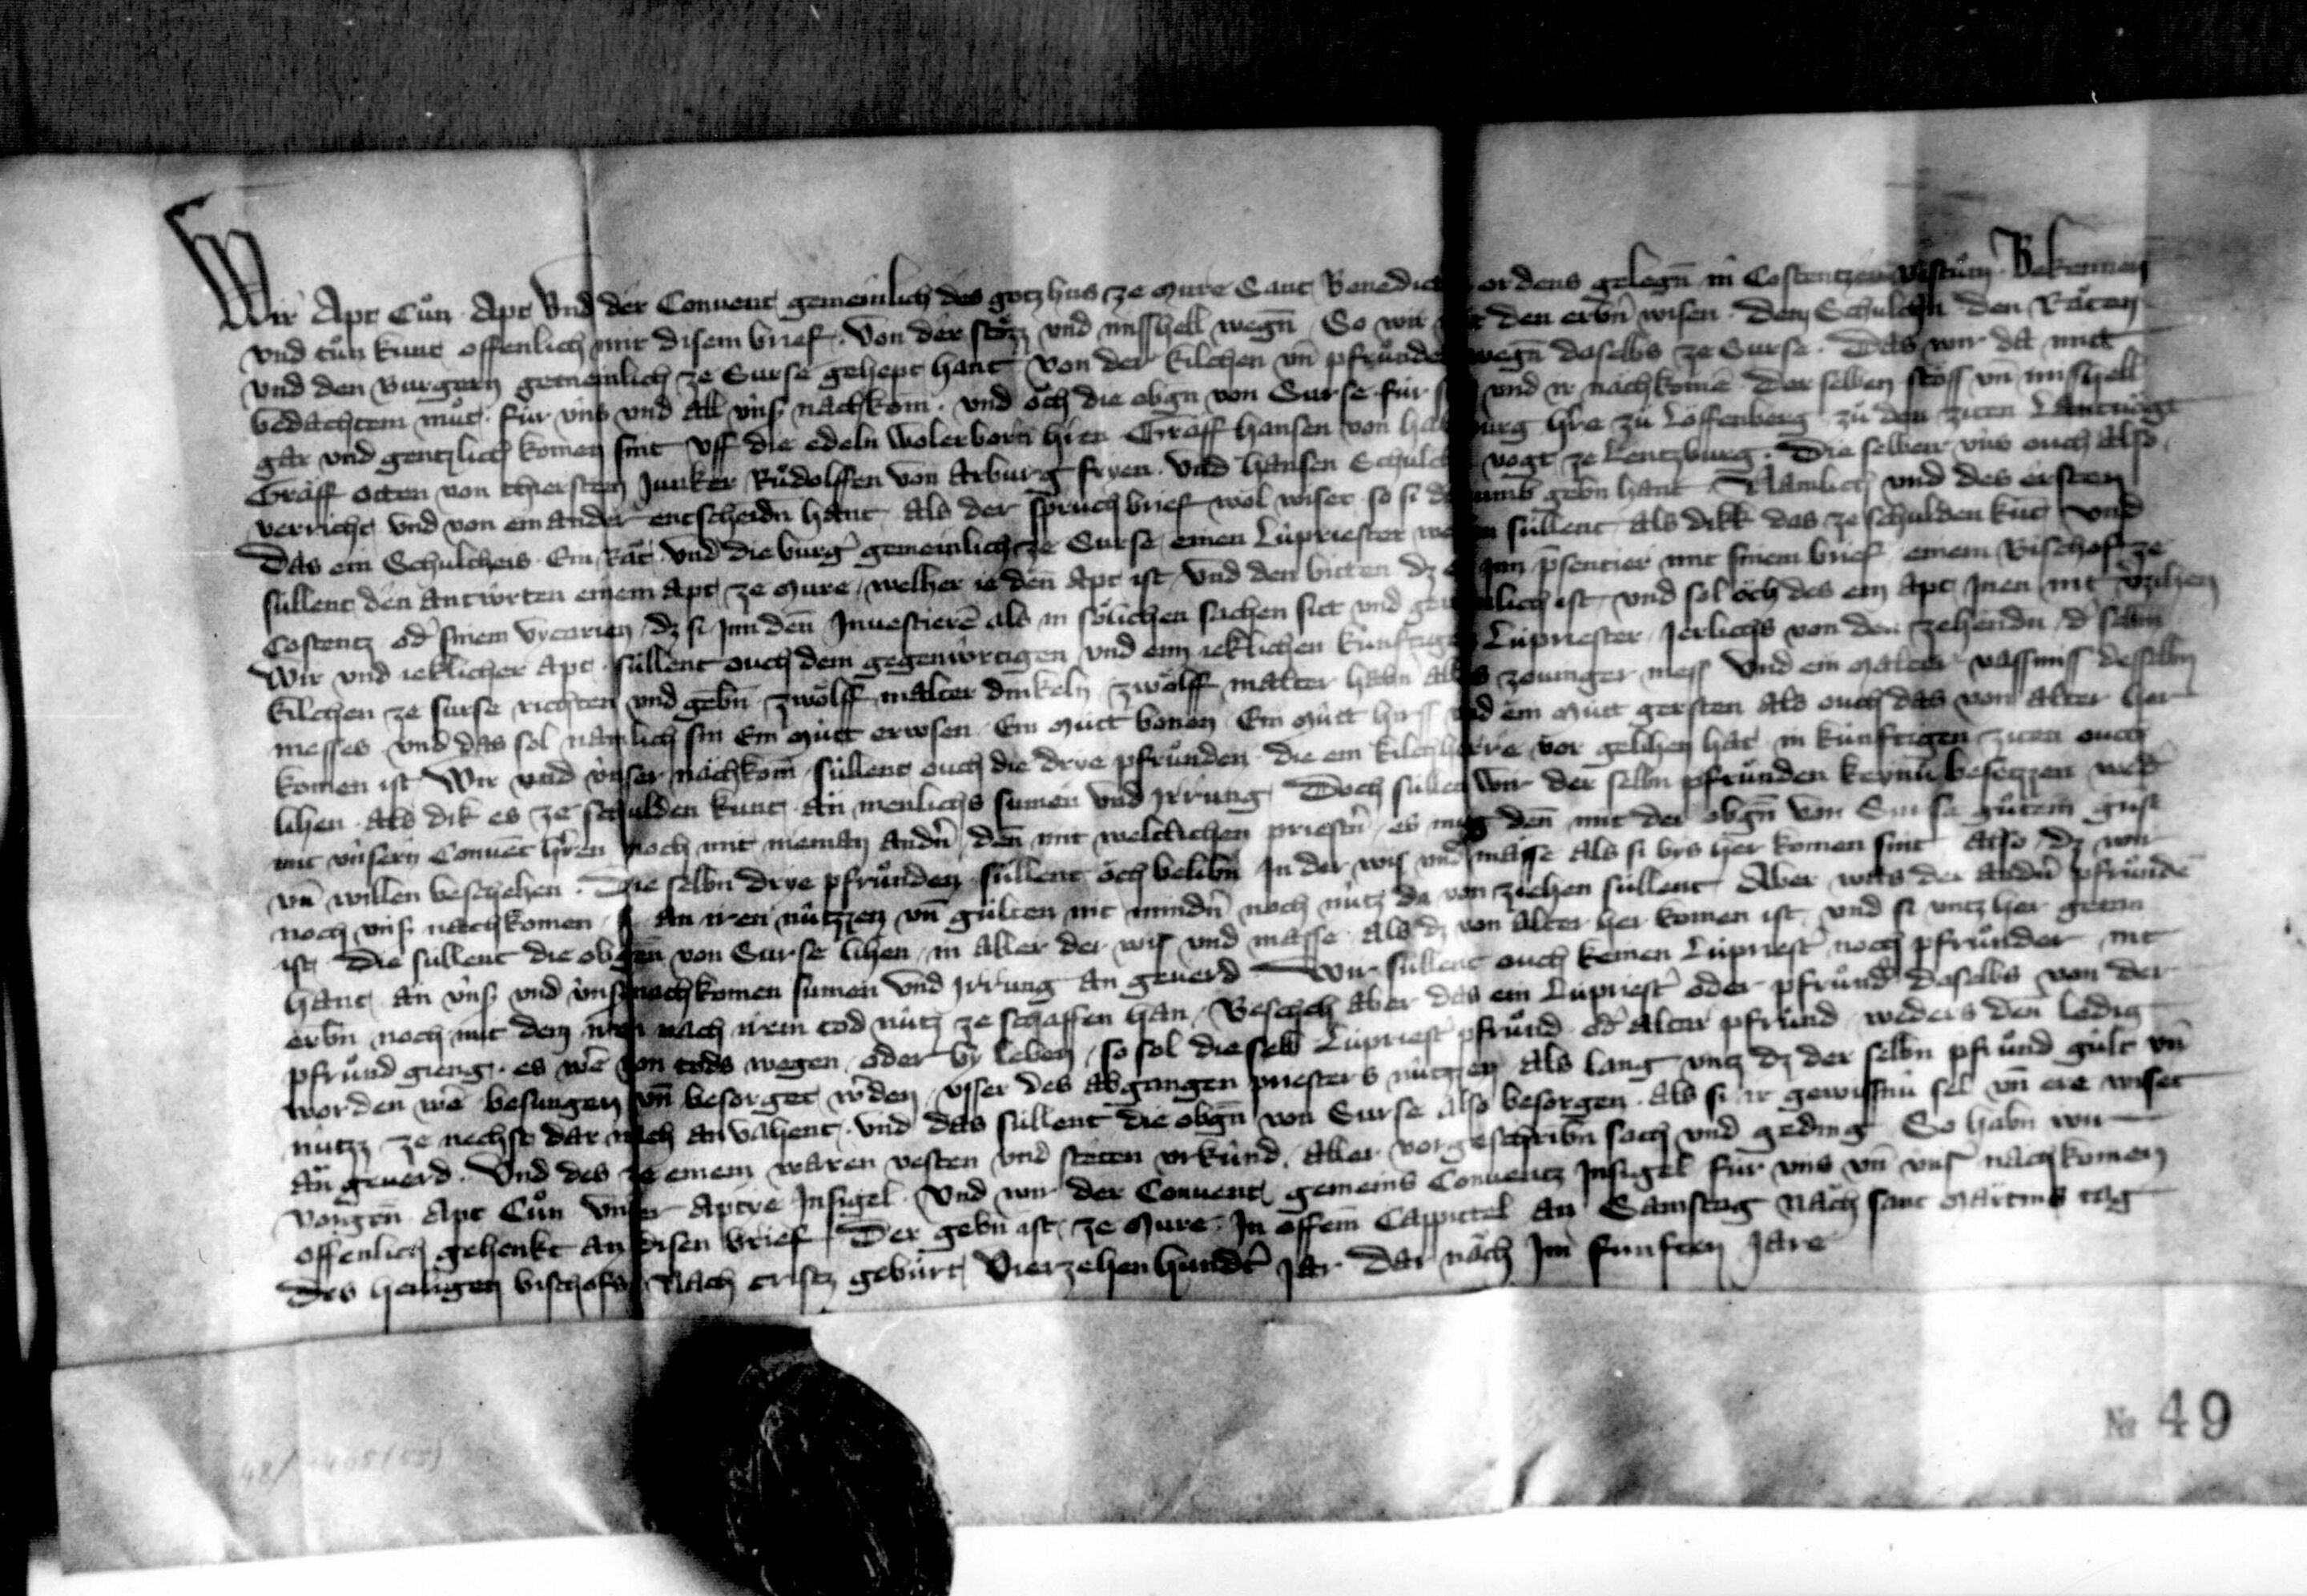 Wir Apt Cůn Apt Vnd der Conuent gemeinlich des gotzhus ze Mure Sant Benedict ordens gelegn̄ in Costentzer Bistům Bekennen
vnd tůn kunt offenlich mit disem brief. Von der stözz vnd misshell wegn̄ So wir den erbn̄ wisen. dem Schulthn den Räten
vnd den Burgern gemeinlich ze Surse gehept hant von der kilchen vn̄ pfrůnde wegn̄ daselbs ze Surse. Das wir da mit
bedachtem můt. für v́ns vnd all v́nſ nachkom̄. vnd öch die obgn von Surse für si vnd ir nachkomē Der selben stöss vn̄ misshell
gar vnd gentzlich komen sint vff die edeln wolerborn hren Graff hansen von habsburg hre zů Löffenberg zů den ziten Lantuogt
Graff otten von thierstein Junker Růdolffen von Arburg fryen. Vnd hansen Schulth vogt ze Lentzburg. Die selben v́ns ouch also
verricht vnd von ein ander entscheidn̄ hant als der spruch brief wol wiset so si dar umb gebn hant. Namlich vnd des ersten
Das ein Schultheis. Ein Rat vnd die burg̉ gemeinlich ze Surse einen Lúpriester sullent als dikk das ze schulden kūt vnd
sullent den antwúrten einem apt ze Mure welher ie den̄ Apt ist vnd den bitten dz er inn p̄sentier mit sinem brief einem Bischof ze
Costentz od̉ sinem vicarien dz si inn den̄ Inuestierē als in sölichen sachen sitt vnd gewonlich ist vnd sol öch des ein apt inen nit v̉zihen
Wir vnd ieklicher Apt súllent ouch dem gegenwirtigen vnd eim ieklichen kúnftigen Lúpriester Jerlichs von den zehendn d̉ selbn
kilchen ze surse richten vnd gebn̄ zwölff malter dinkeln zwölff malter habn̄ alles zouinger mess Vnd ein malter vassmiss desselbn
messes vnd das sol namlich sin Ein Mútt erwsen Ein Mútt bonen Ein Mútt hirss vnd ein Mútt gersten als ouch das von alter her
komen ist Wir vnd v́nser nachkom̄ súllent ouch die drye pfrůnden die ein kilchherre vor gelihen hat in kúnftigen ziten ouch
lihen als dik es ze schulden kunt an menlichs sumen vnd irrung Doch súllen wir der selbn pfrůnden keynū besetzzen wed̉
mit v́nsern Conuēt hren noch mit nieman andn̉ den̄ mit weltlichen priestn̉ es mug den̄ mit der obgn̄ von Surse gůtem gust
vn̄ willen beschehen. Die selbn drye pfrůnden súllent öch belibn̄ In der wis vnd masse als si bis her komen sint Also dz wir
noch v́nſ nachkomen an iren nútzzen vn̄ gúlten nit mindn̉ noch nútz da von ziehen súllent Aber was der andn̉ pfrůndē
ist Die sullent die obgen̄ von Surse lihen in aller der wis vnd masse als dz von alter her komen ist vnd si vntz her getan
hant an v́nſ vnd v́nſ nachkomen sumen vnd irrung an geuerd Wir súllent ouch keinen Lúpriest̉ noch pfrůnder nit
erbn noch mit dem iren nach irem tod nútz ze schaffen han. Beschech aber das ein Lúpriest̉ oder pfrůnd̉ daselbs von der
pfrůnd gieng. es wē von tods wegen oder by leben so sol die selb Lúpriest̉ pfrůnd od̉ altar pfrůnd weders den̄ ledig
worden wē besungen vn̄ besorget w̉den vsser des abgangen priesters nútzzen als lang vntz dz der selbn pfrůnd gúlt vn̄
nútzz ze nechst dar nach an vahent. vnd das súllent die obgn̄ von Surse also besorgen. als si ir gewissnú sel vn̄ ere wiset
an geuerd. Vnd des ze einem waren vesten vnd stäten vrkúnd aller vorgeschribn̄ sach vnd geding So habn wir
vorgen̄ Apt Cůn vnser Aptye Insigel Vnd wir der Conuent gemeins Conuentz Insigel für vns vn̄ vnſ nachkomen
offenlich gehenkt an disen brief Der gebn̄ ist ze Mure In offem Cappittel an Samstag Nach sant Martins tag
Des heiligen bischofs Nach cristz gebúrt Vierzehenhundt̉ Jar Dar nach Im funften Jare
№ 49